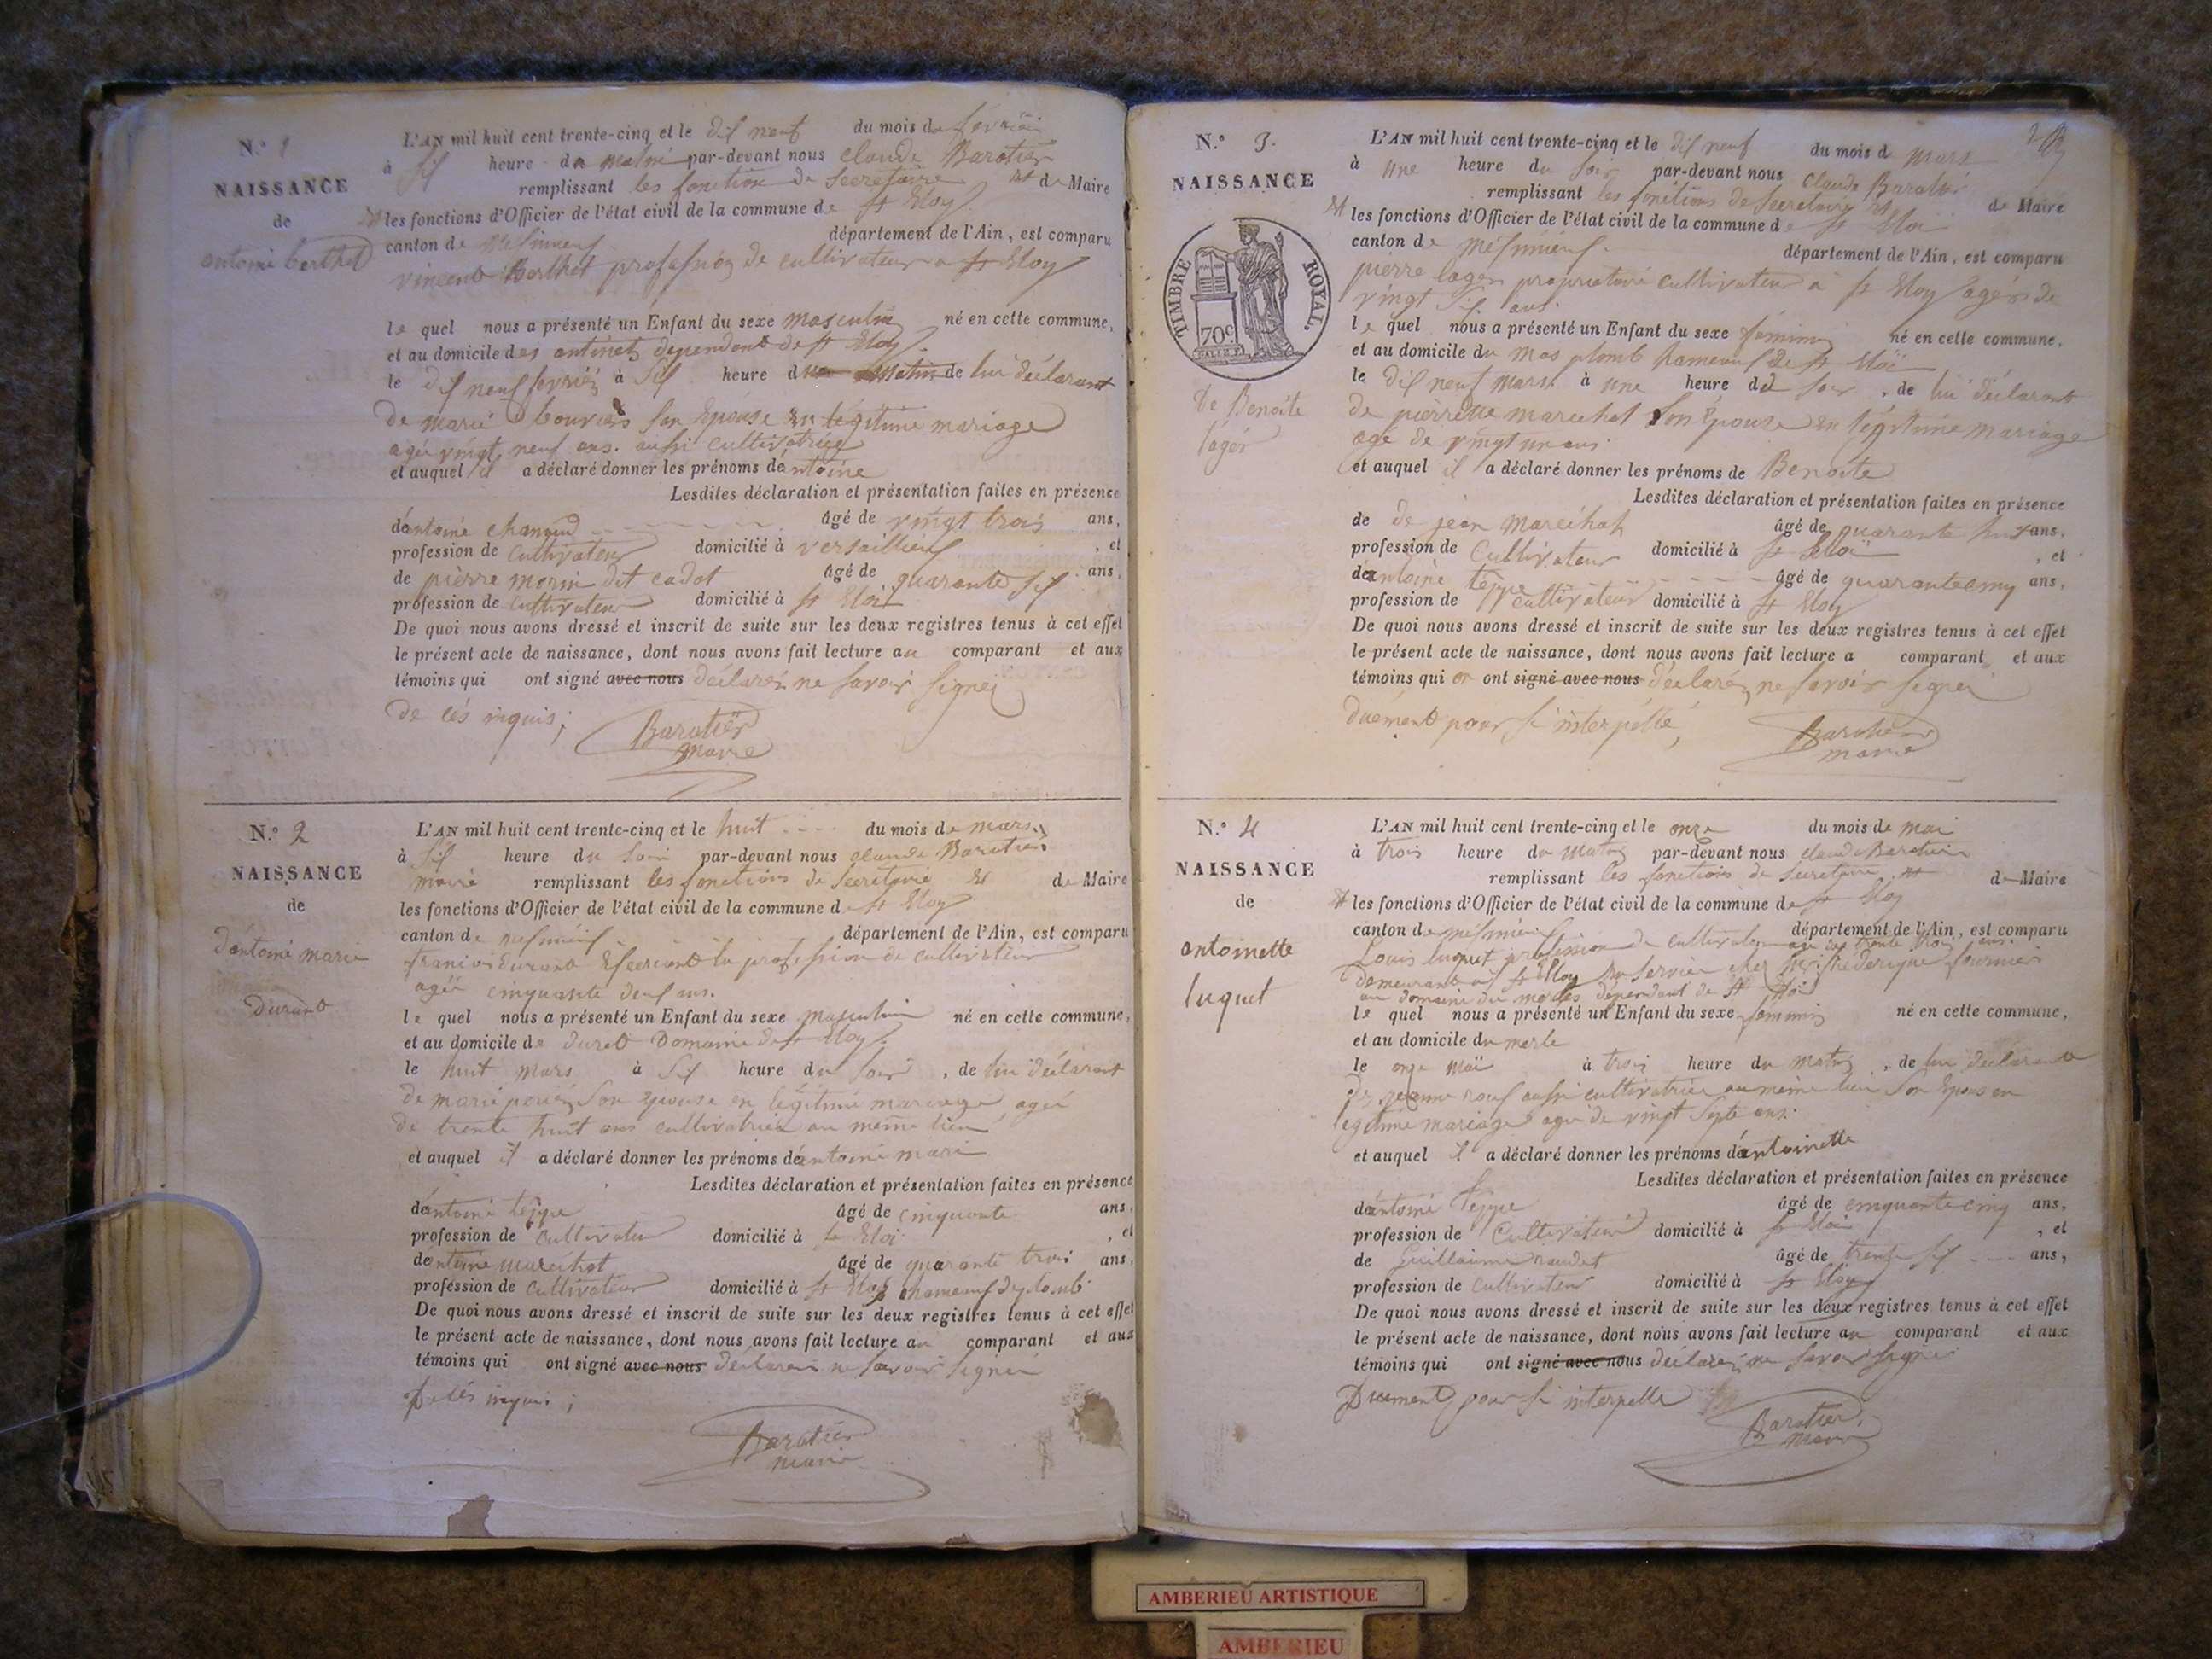 N.° 1
NAISSANCE
de
antoine berthet
L'AN mil huit cent trente-cinq et le dix neuf du mois de fevrier
à six heure du matin par-devant nous claude Baratier
remplissant les fonction de Secretaire et de Maire
les fonctions d'Officier de l'état civil de la commune de St Eloy
canton de Meximieux département de l'Ain, est comparu
vincent Berthet profession de cultivateur a St Eloy
le quel nous a présenté un Enfant du sexe masculin né en cette commune,
et au domicile des dependant de St Eloy
le dix neuf fevrier à six heure du matin de lui déclarant
de marie bouvier son Epouse en légitime mariage
agée vingt neuf ans. aussi cultivatrice
et auquel il a déclaré donner les prénoms dantoine
Lesdites déclaration et présentation faites en présence
dantoine âgé de vingt trois ans,
profession de cultivateur domicilié à versailleux, et
de pierre morin dit cadot âgé de quarante six ans,
profession de cultivateur domicilié à St Eloi
De quoi nous avons dressé et inscrit de suite sur les deux registres tenus à cet effet
le présent acte de naissance, dont nous avons fait lecture au comparant et aux
témoins qui ont signé avec nous déclarez ne savoir signer
de ces requis;
Baratier
maire
N.° 2
NAISSANCE
de
dantoine marie
durand
L'AN mil huit cent trente-cinq et le huit du mois de mars
à six heure du soir par-devant nous claude Baratier
maire remplissant les fonctions de secretaire et de Maire
les fonctions d'Officier de l'état civil de la commune de St Eloy
canton de meximieux département de l'Ain, est comparu
francois durand Exercant la profession de cultivateur
agée cinquante deux ans.
le quel nous a présenté un Enfant du sexe masculin né en cette commune,
et au domicile de Domaine de St Eloy.
le huit mars à six heure du soir, de lui déclarant
de marie son Epouse en légitime mariage agée
de trente huit ans cultivatrice au même lieu
et auquel il a déclaré donner les prénoms dantoine marie
Lesdites déclaration et présentation faites en présence
dantoine teppe âgé de cinquante ans,
profession de cultivateur domicilié à St Eloi, et
dantoine maréchal âgé de quarante trois ans,
profession de cultivateur domicilié à St Eloy
De quoi nous avons dressé et inscrit de suite sur les deux registres tenus à cet effet
le présent acte de naissance, dont nous avons fait lecture au comparant et aux
témoins qui ont signé avec nous déclarez ne savoir signer
de ces requis;
Baratier
maire
N.° 3.
NAISSANCE
TIMBRE ROYAL.
70c
de Benoite
lager
L'AN mil huit cent trente-cinq et le dix neuf du mois d mars
à une heure du soir par-devant nous claude Baratier
remplissant les fonctions de secretaire et de Maire
les fonctions d'Officier de l'état civil de la commune de St Eloi
canton de meximieux. département de l'Ain, est comparu
pierre lager proprietaire cultivateur a St Eloy agés de
vingt six ans
le quel nous a présenté un Enfant du sexe féminin né en cette commune,
et au domicile du mas plomb hameaux de St Eloi
le dix neuf mars à une heure du soir, de lui déclarant
de pierrette marechal son Epouse en légitime mariage
agé de vingt un ans.
et auquel il a déclaré donner les prénoms de Benoite
Lesdites déclaration et présentation faites en présence
de de jean maréchal âgé de quarante huit ans,
profession de cultivateur domicilié à St Eloi, et
dantoine teppe âgé de quarantecinq ans,
profession de cultivateur domicilié à St Eloy
De quoi nous avons dressé et inscrit de suite sur les deux registres tenus à cet effet
le présent acte de naissance, dont nous avons fait lecture a comparant et aux
témoins qui on ont signé avec nous déclaréz ne savoir signer
duement pour si interpellé,
Baratier
maire
N.° 4
NAISSANCE
de
antoinette
luquet
L'AN mil huit cent trente-cinq et le onze du mois de mai
à trois heure du matin par-devant nous claude Baratier
remplissant les fonctions de secretaire et de Maire
les fonctions d'Officier de l'état civil de la commune de St Eloy
canton de meximieux département de l'Ain, est comparu
Louis luquet profession de cultivateur agé de trente trois ans.
demeurant a St Eloy en service chez fréderique fournier
au domaine du merles dépendant de St Eloi
le quel nous a présenté un Enfant du sexe feminin né en cette commune,
et au domicile du merle
le onze mai à trois heure du matin, de lui déclarant
de jeanne roux aussi cultivatrice au même lieu son Epouse en
legitime mariage agée de vingt septe ans.
et auquel il a déclaré donner les prénoms dantoinette
Lesdites déclaration et présentation faites en présence
dantoine teppe âgé de cinquante cinq ans,
profession de cultivateur domicilié à St Eloi, et
de Guillaume naudet âgé de trente six ans,
profession de cultivateur domicilié à St Eloy
De quoi nous avons dressé et inscrit de suite sur les deux registres tenus à cet effet
le présent acte de naissance, dont nous avons fait lecture au comparant et aux
témoins qui ont signé avec nous déclarez ne savoir signer
Duement pour si interpelle
Baratier
maire
AMBERIEU ARTISTIQUE
AMBERIEU